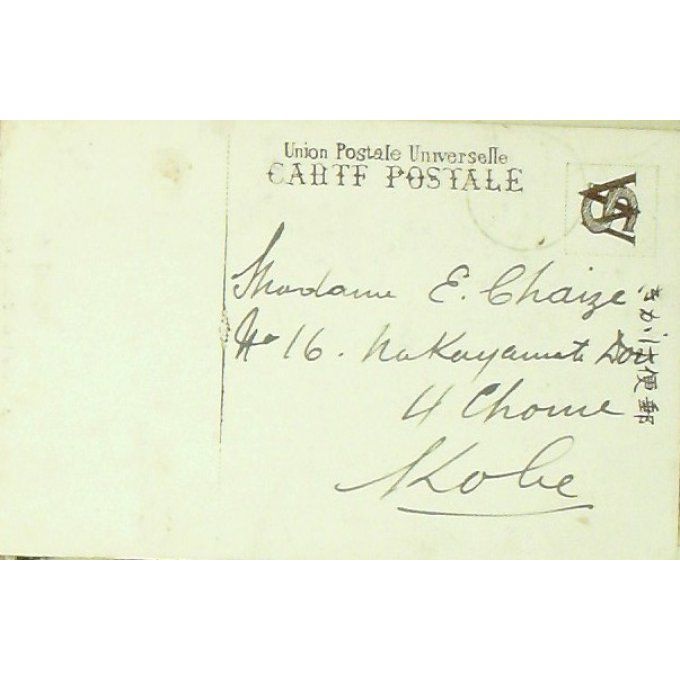 Union Postale Universelle
CARTE POSTALE
Madame E. Chaize,
No 16. Nakayamate Dori
4 Chome
Kobe
きかは便郵